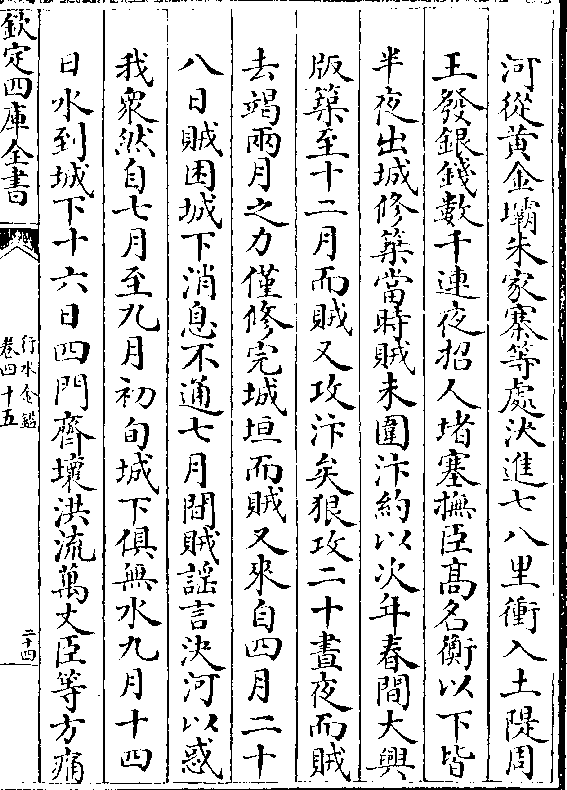 河從黃金壩朱家寨等處決進七八里衝入土隄周
王發銀錢數千連夜招人堵塞撫臣髙名衡以下皆
半夜出城修築當時賊未圍汴約以次年春間大興
版築至十二月而賊又攻汴矣狠攻二十晝夜而賊
去竭兩月之力僅修完城垣而賊又來自四月二十
八日賊困城下消息不通七月間賊謡言決河以惑
我衆然自七月至九月初旬城下俱無水九月十四
日水到城下十六日四門齊壞洪流萬丈臣等方痛
欽定四庫全書
行水金鑑
卷四十五
二十四